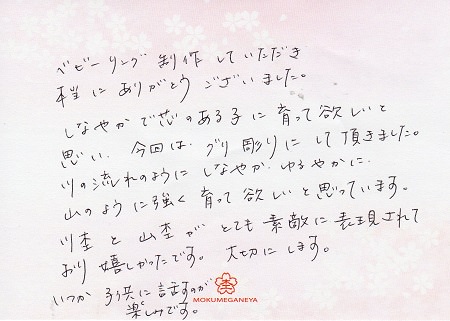 ベビーリング 制作していただき
本当に ありがとう ございました。
しなやかで芯のある子に 育って欲しいと
思い、今回は、グリ彫りに して頂きました。
川の流れのように しなやか、ゆるやかに、
山のように強く 育って 欲しいと思っています。
川杢 と 山杢が とても 素敵に 表現されて
おり 嬉しかったです。 大切に します。
いつか 子供に 話すのが
楽しみです。
MOKUMEGANEYA